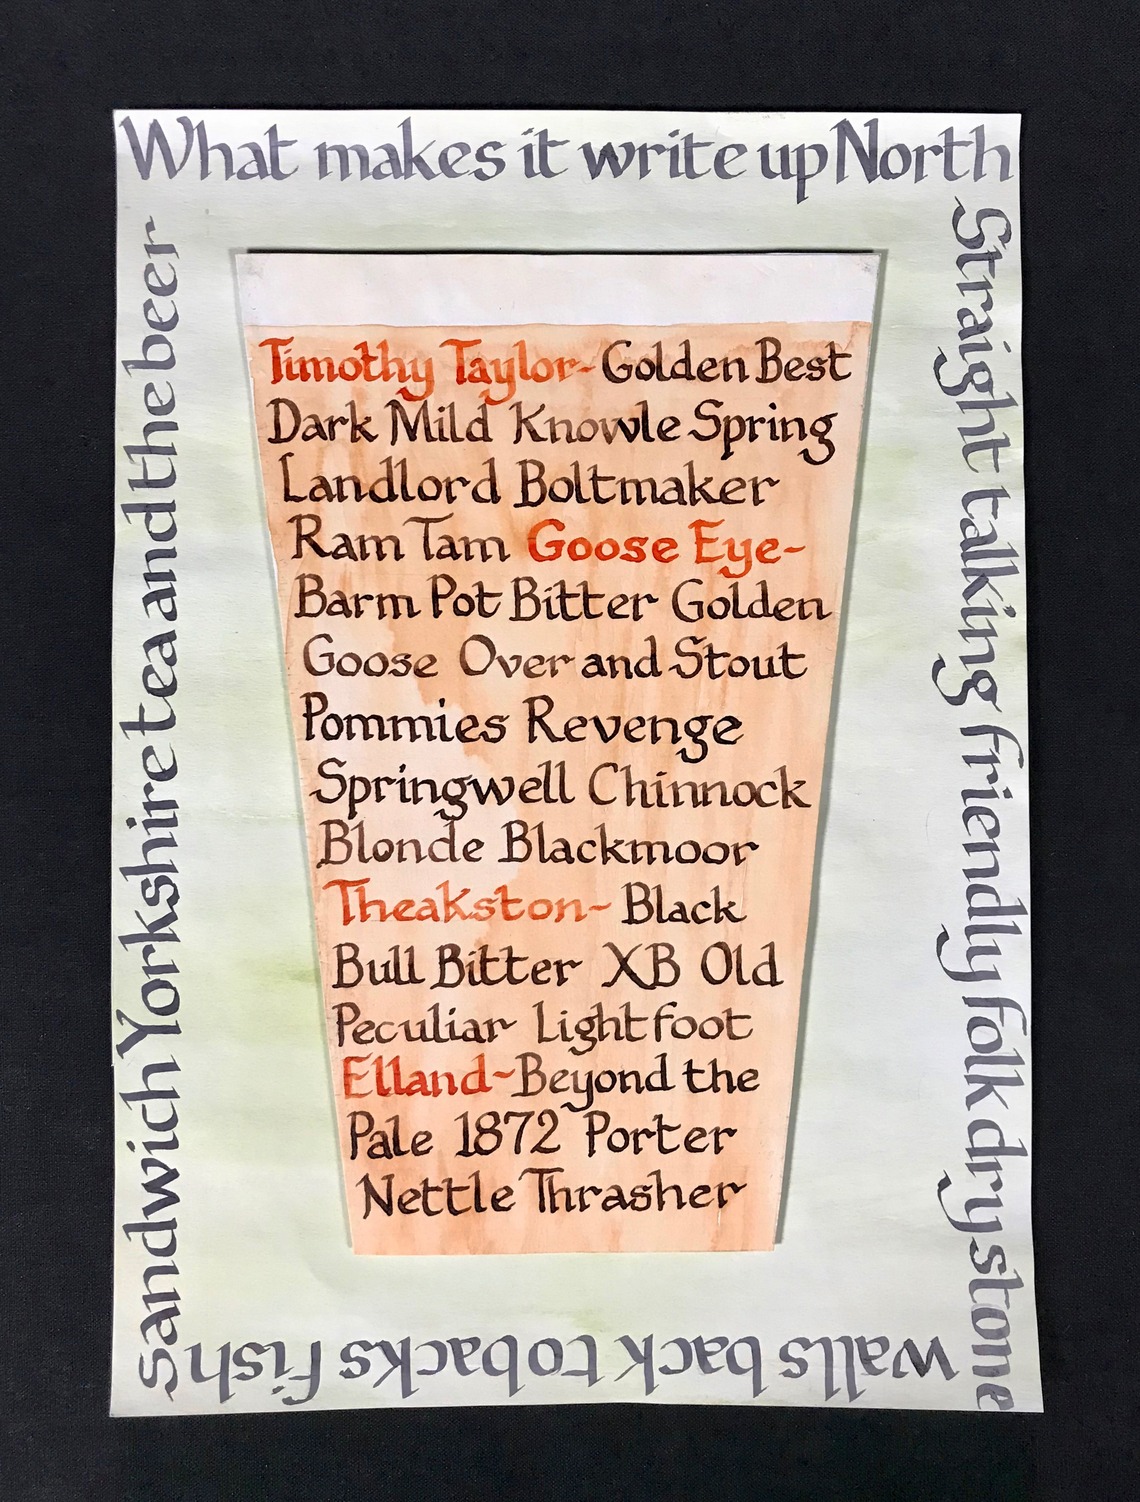 What makes it write up North
Straight talking friendly folk dry stone
walls back to backs fish
sandwich Yorkshire tea and the beer
Timothy Taylor- Golden Best
Dark Mild Knowle Spring
Landlord Boltmaker
Ram Tam Goose Eye-
Barm Pot Bitter Golden
Goose Over and Stout
Pommies Revenge
Springwell Chinnock
Blonde Blackmoor
Theakston- Black
Bull Bitter XB Old
Peculiar Lightfoot
Elland-Beyond the
Pale 1872 Porter
Nettle Thrasher